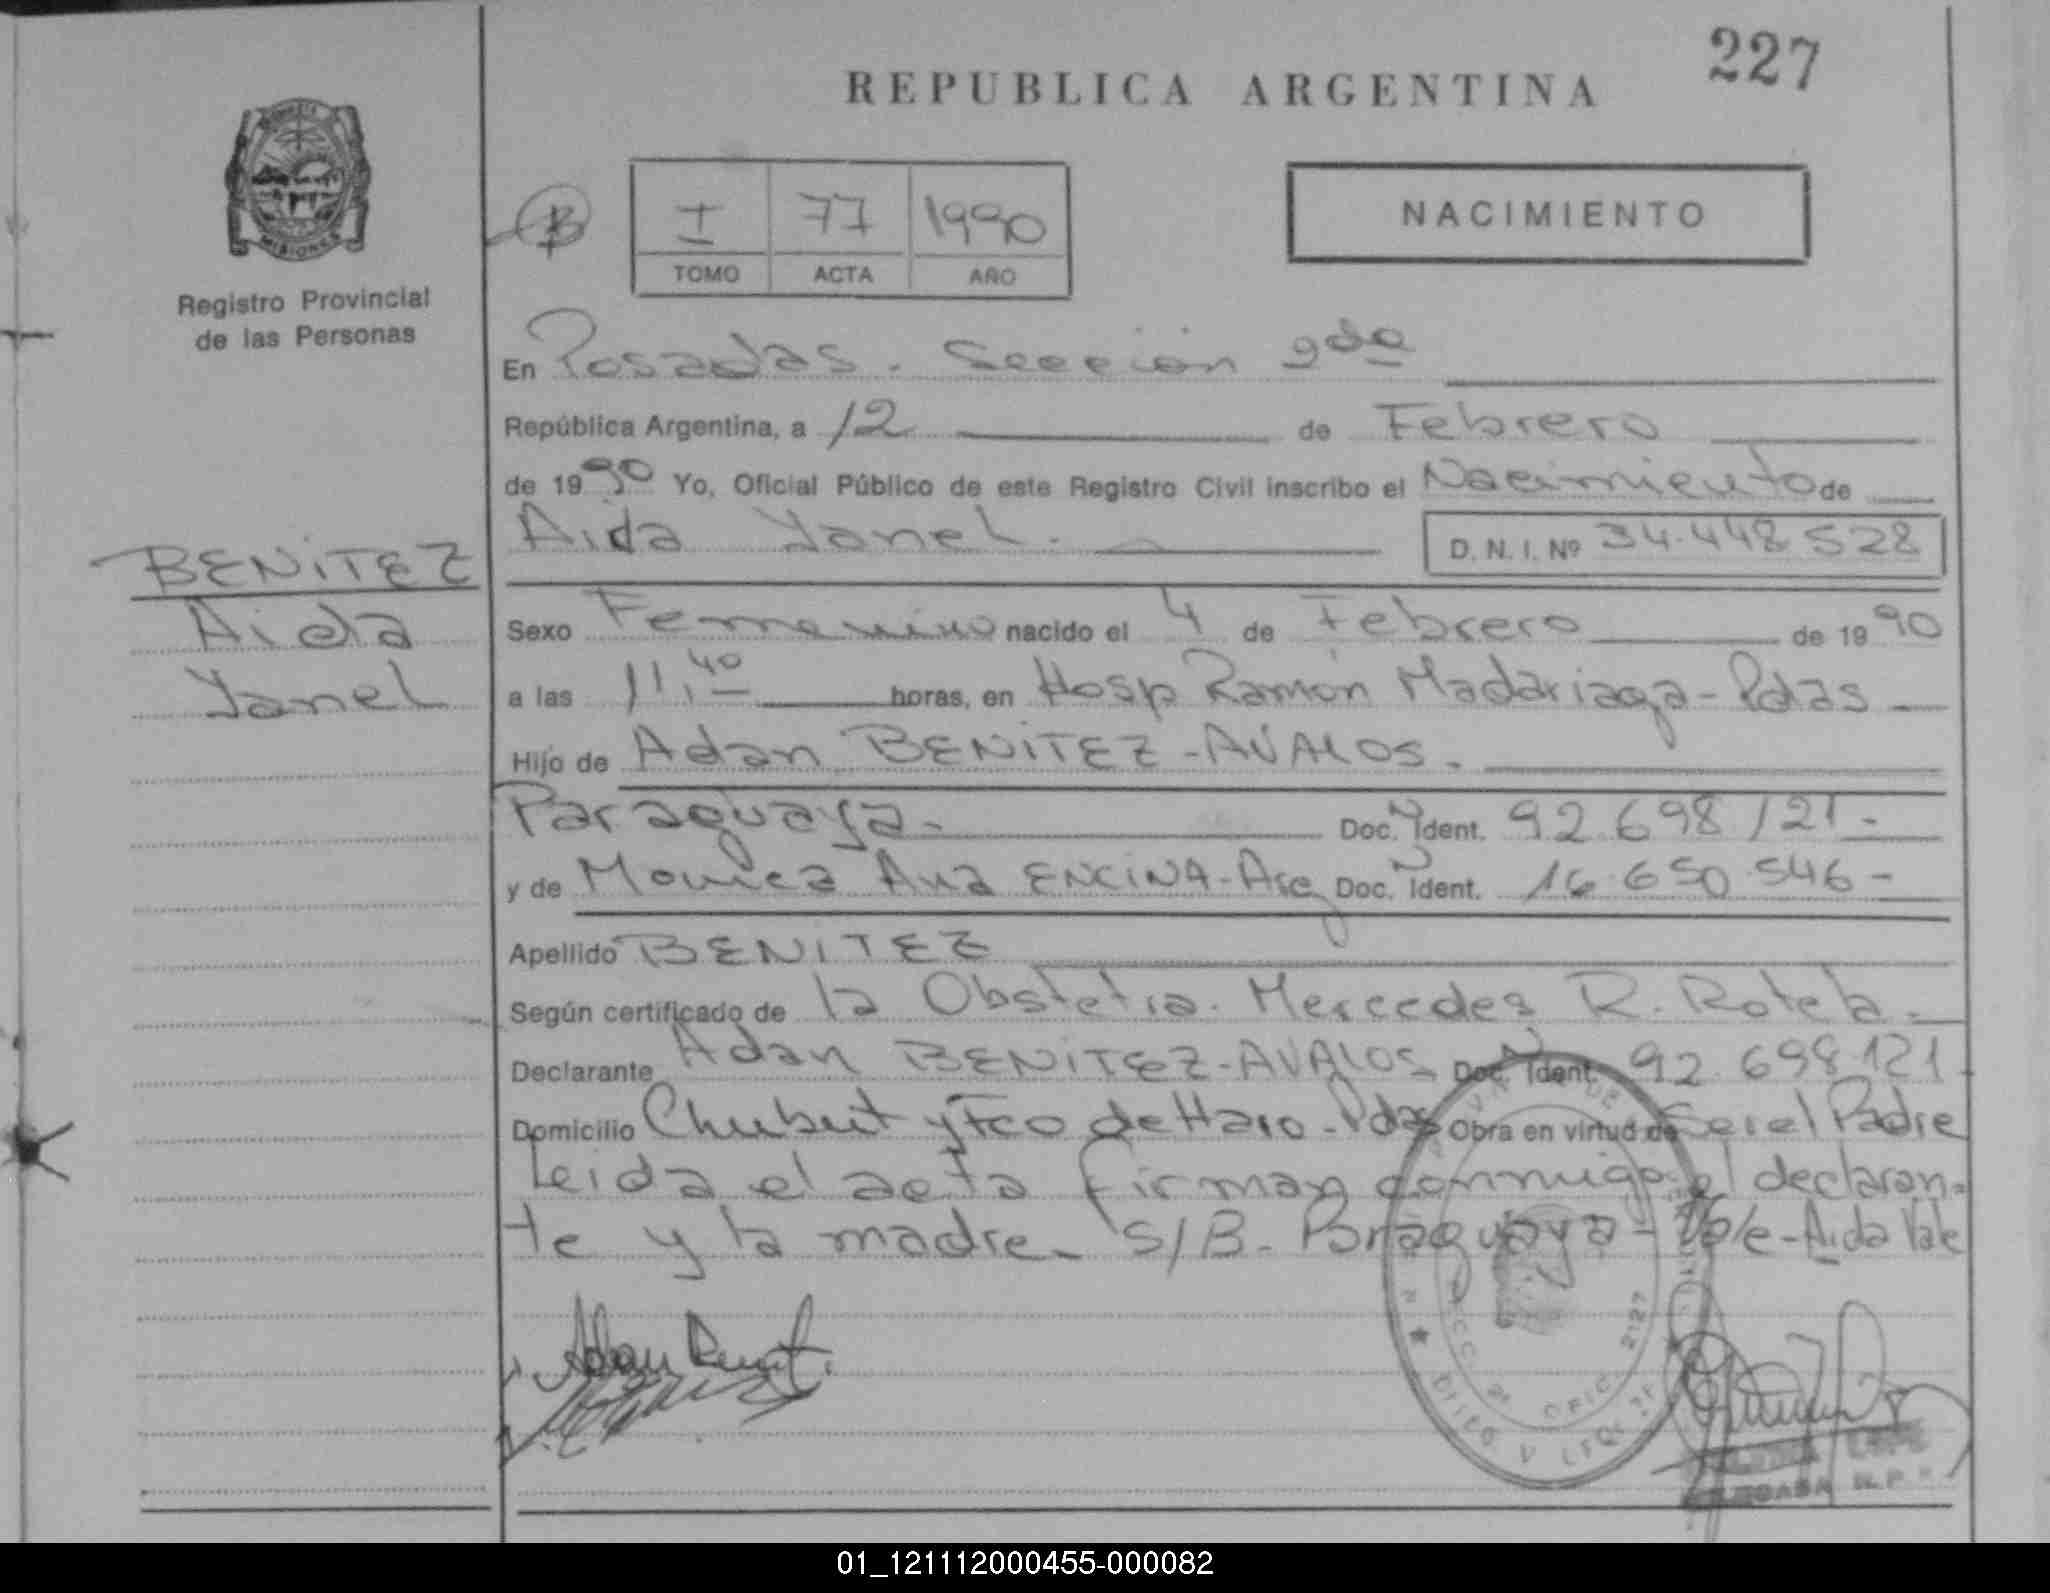 227
REPUBLICA ARGENTINA
MISIONES
Registro Provincial
de las Personas
B
I 77 1990
TOMO ACTA AÑO
NACIMIENTO
En Posadas. Sección 2da
República Argentina, a 12 de Febrero
de 1990 Yo, Oficial Público de este Registro Civil inscribo el Nacimiento de
Aida Yanel. D. N. I. Nº 34.448.528
BENITEZ
Aida
Yanel
Sexo Femenino nacido el 4 de Febrero de 1990
a las 11,40 horas, en Hosp Ramón Madariaga - Pdas
Hijo de Adan BENITEZ - AVALOS.
Paraguaya. Doc. Ident. 92.698121.-
y de Monica Ana ENCINA - Arg Doc. Ident. 16.650.546-
Apellido BENITEZ
Según certificado de la Obstetra. Mercedes R. Rotela.
Declarante Adan BENITEZ - AVALOS Doc. Ident. 92.698.121
Domicilio Chubut y Fco de Haro - Pdas Obra en virtud de Ser el Padre
Leida el acta firman conmigo el declaran-
te y la madre - S/B - Paraguaya - Vale - Aida Vale
SECC. 2ª OFIC. 2127
01_121112000455-000082